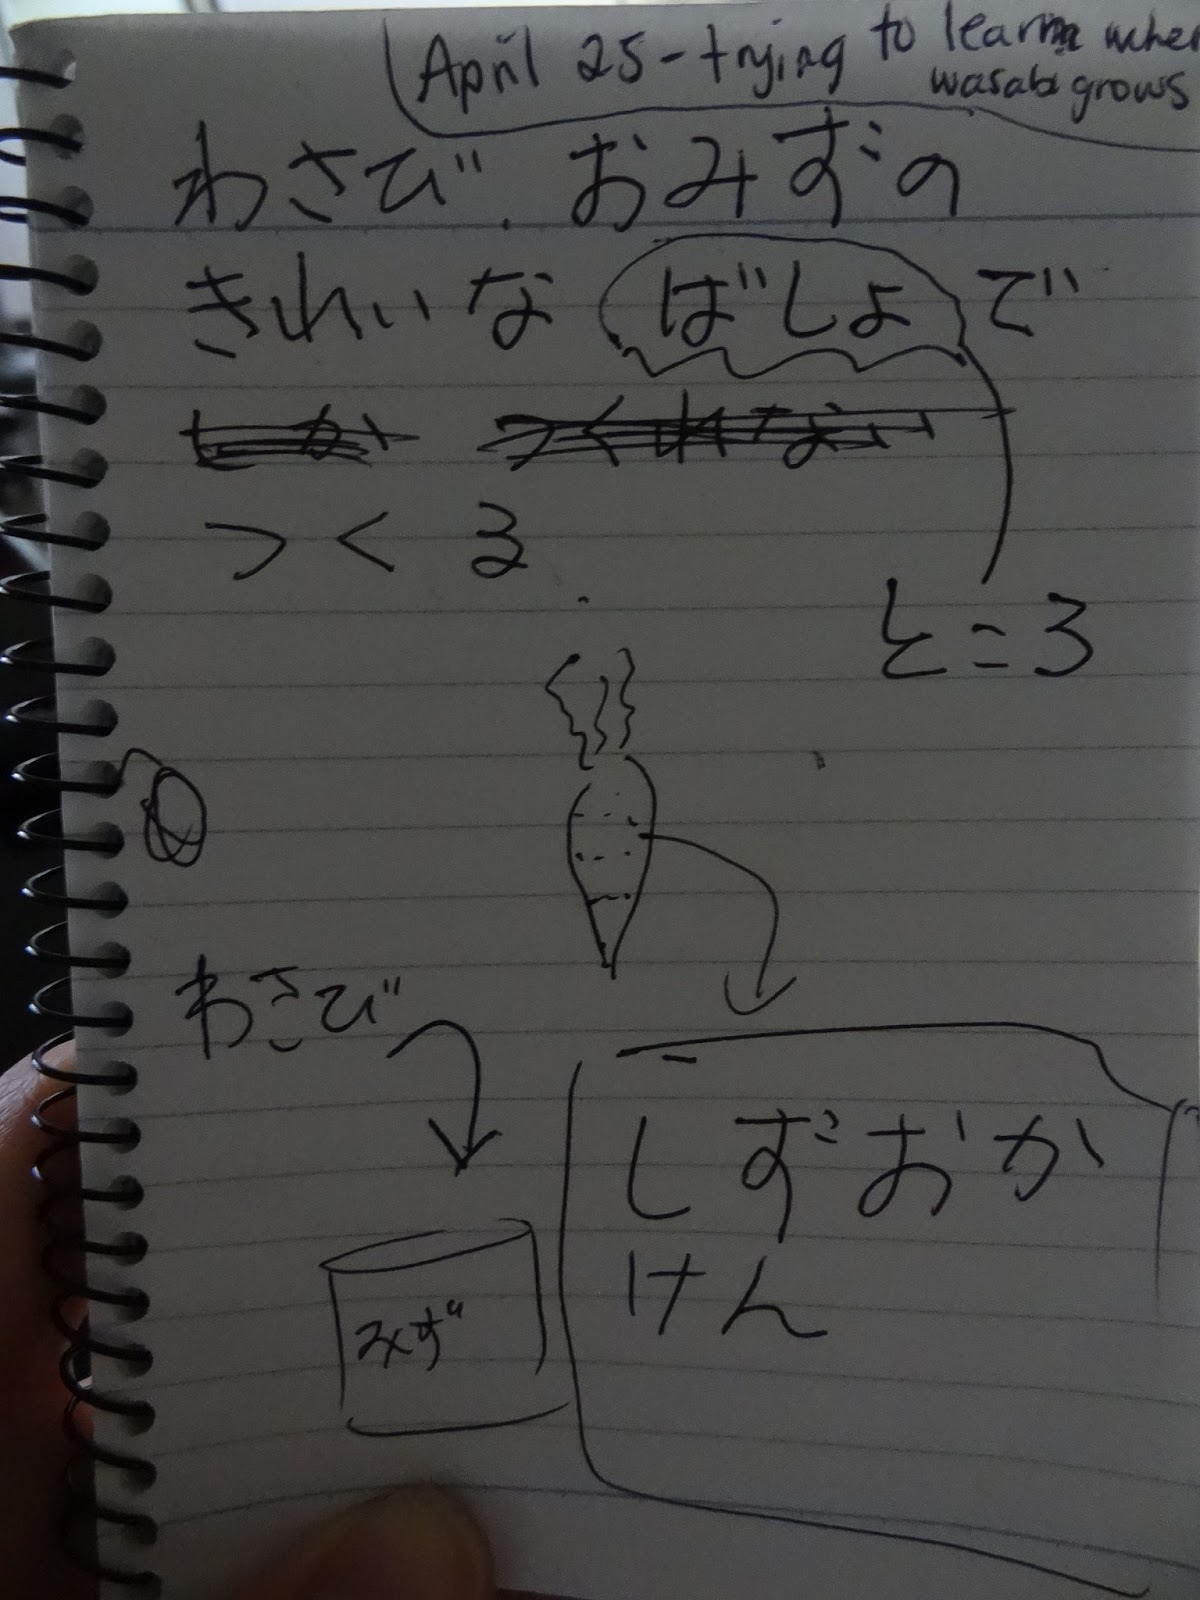 April 25 - trying to learn wher
wasabi grows
わさび. おみずの
きれいな ばしょ で
つくる
ところ
わさび
しずおか
けん
みず